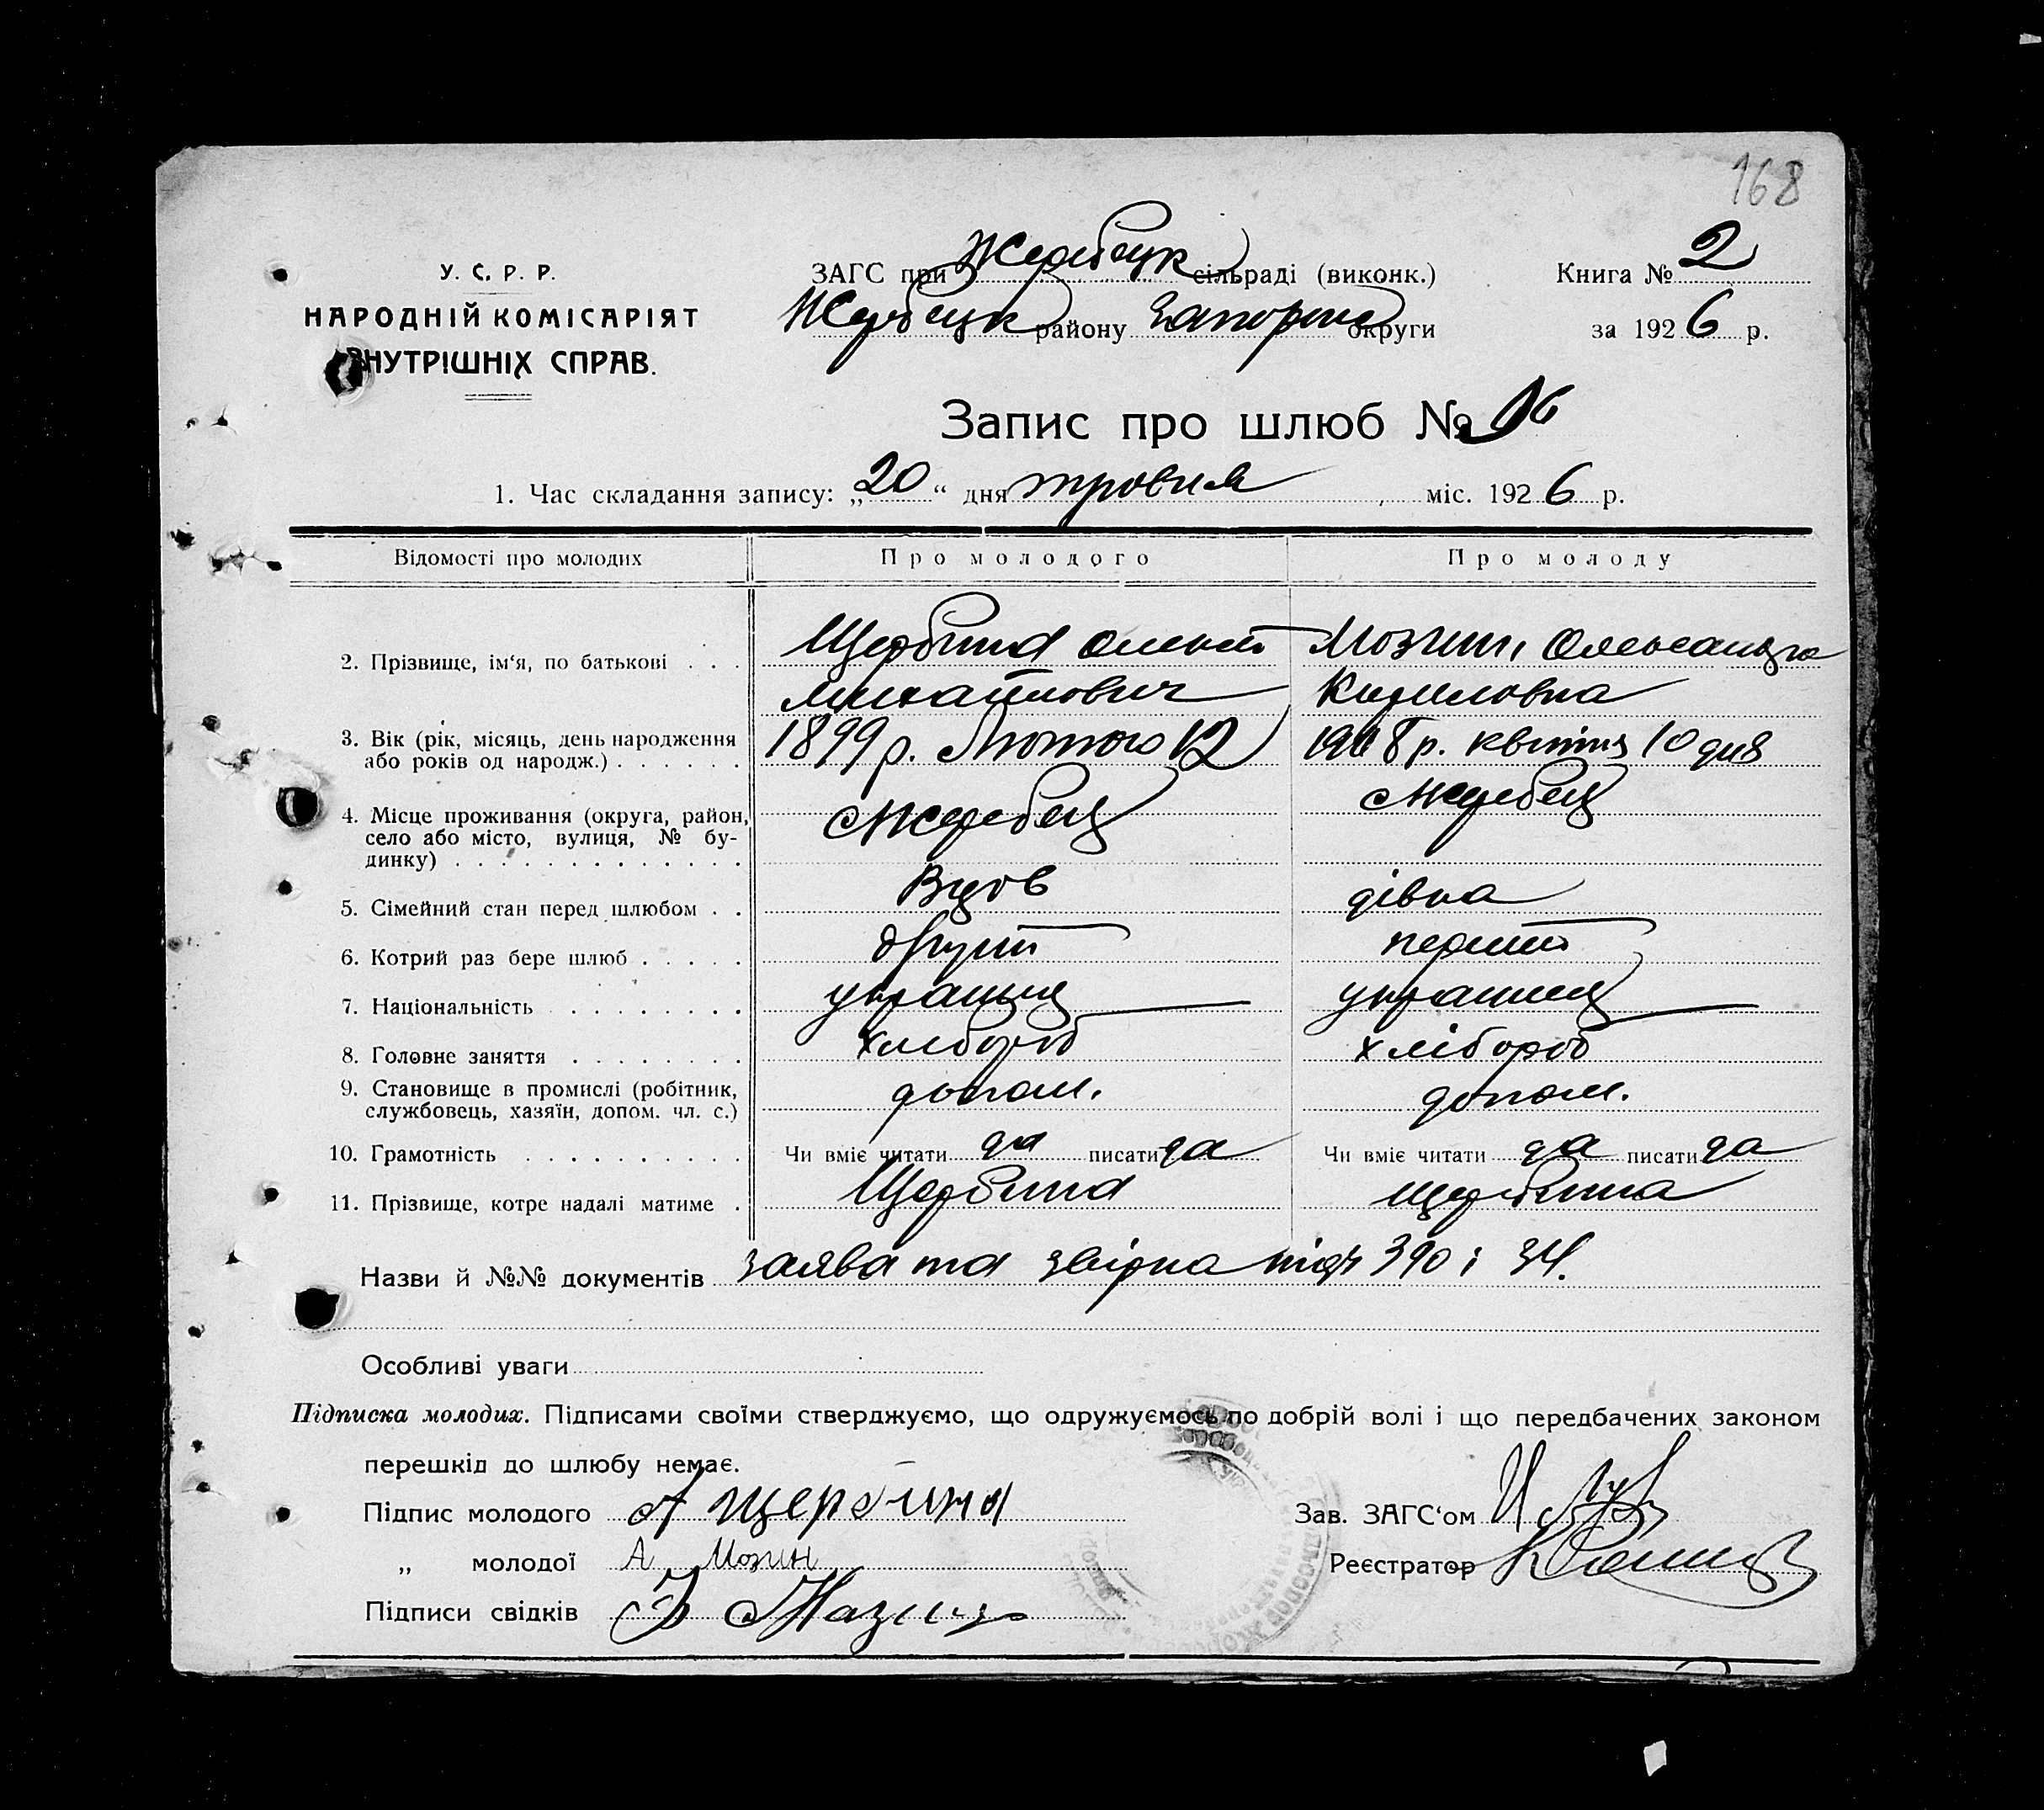 168
У. С. Р. Р.
НАРОДНІЙ КОМІСАРІЯТ
ВНУТРІШНІХ СПРАВ.
ЗАГС при Жеребецк сільраді (виконк.)
Жеребецк району Запоріж округи
Книга № 2
за 1926 р.
Запис про шлюб № 16
1. Час складання запису: „20“ дня травня, міс. 1926 р.
Відомості про молодих Про молодого Про молоду
2. Прізвище, ім‘я, по батькові . . . Щербина Олексій Мозгин Олександра
Михайлович Кириловна
3. Вік (рік, місяць, день народження 1899 р. Лютого 12 1908 р. квітня 10 дня
або років од народж.) . . . . . .
4. Місце проживання (округа, район, Жеребец Жеребец
село або місто, вулиця, № бу-
динку) . . . . . . . . . . . . .
5. Сімейний стан перед шлюбом . . Вдов дівка
6. Котрий раз бере шлюб . . . . . другий перший
7. Національність . . . . . . . . украинц украинец
8. Головне заняття . . . . . . . хлибороб хлібороб
9. Становище в промислі (робітник, допом. допом.
службовець, хазяїн, допом. чл. с.)
10. Грамотність . . . . . . . . . . Чи вміє читати да писати да Чи вміє читати да писати да
11. Прізвище, котре надалі матиме . Щербина Щербина
Назви й №№ документів заява та звірка під № 390 і 34.
Особливі уваги
Підписка молодих. Підписами своїми стверджуємо, що одружуємось по добрій волі і що передбачених законом
перешкід до шлюбу немає.
Підпис молодого А Щербина
Зав. ЗАГС‘ом
„ молодої А Мозин
Реєстратор
Підписи свідків